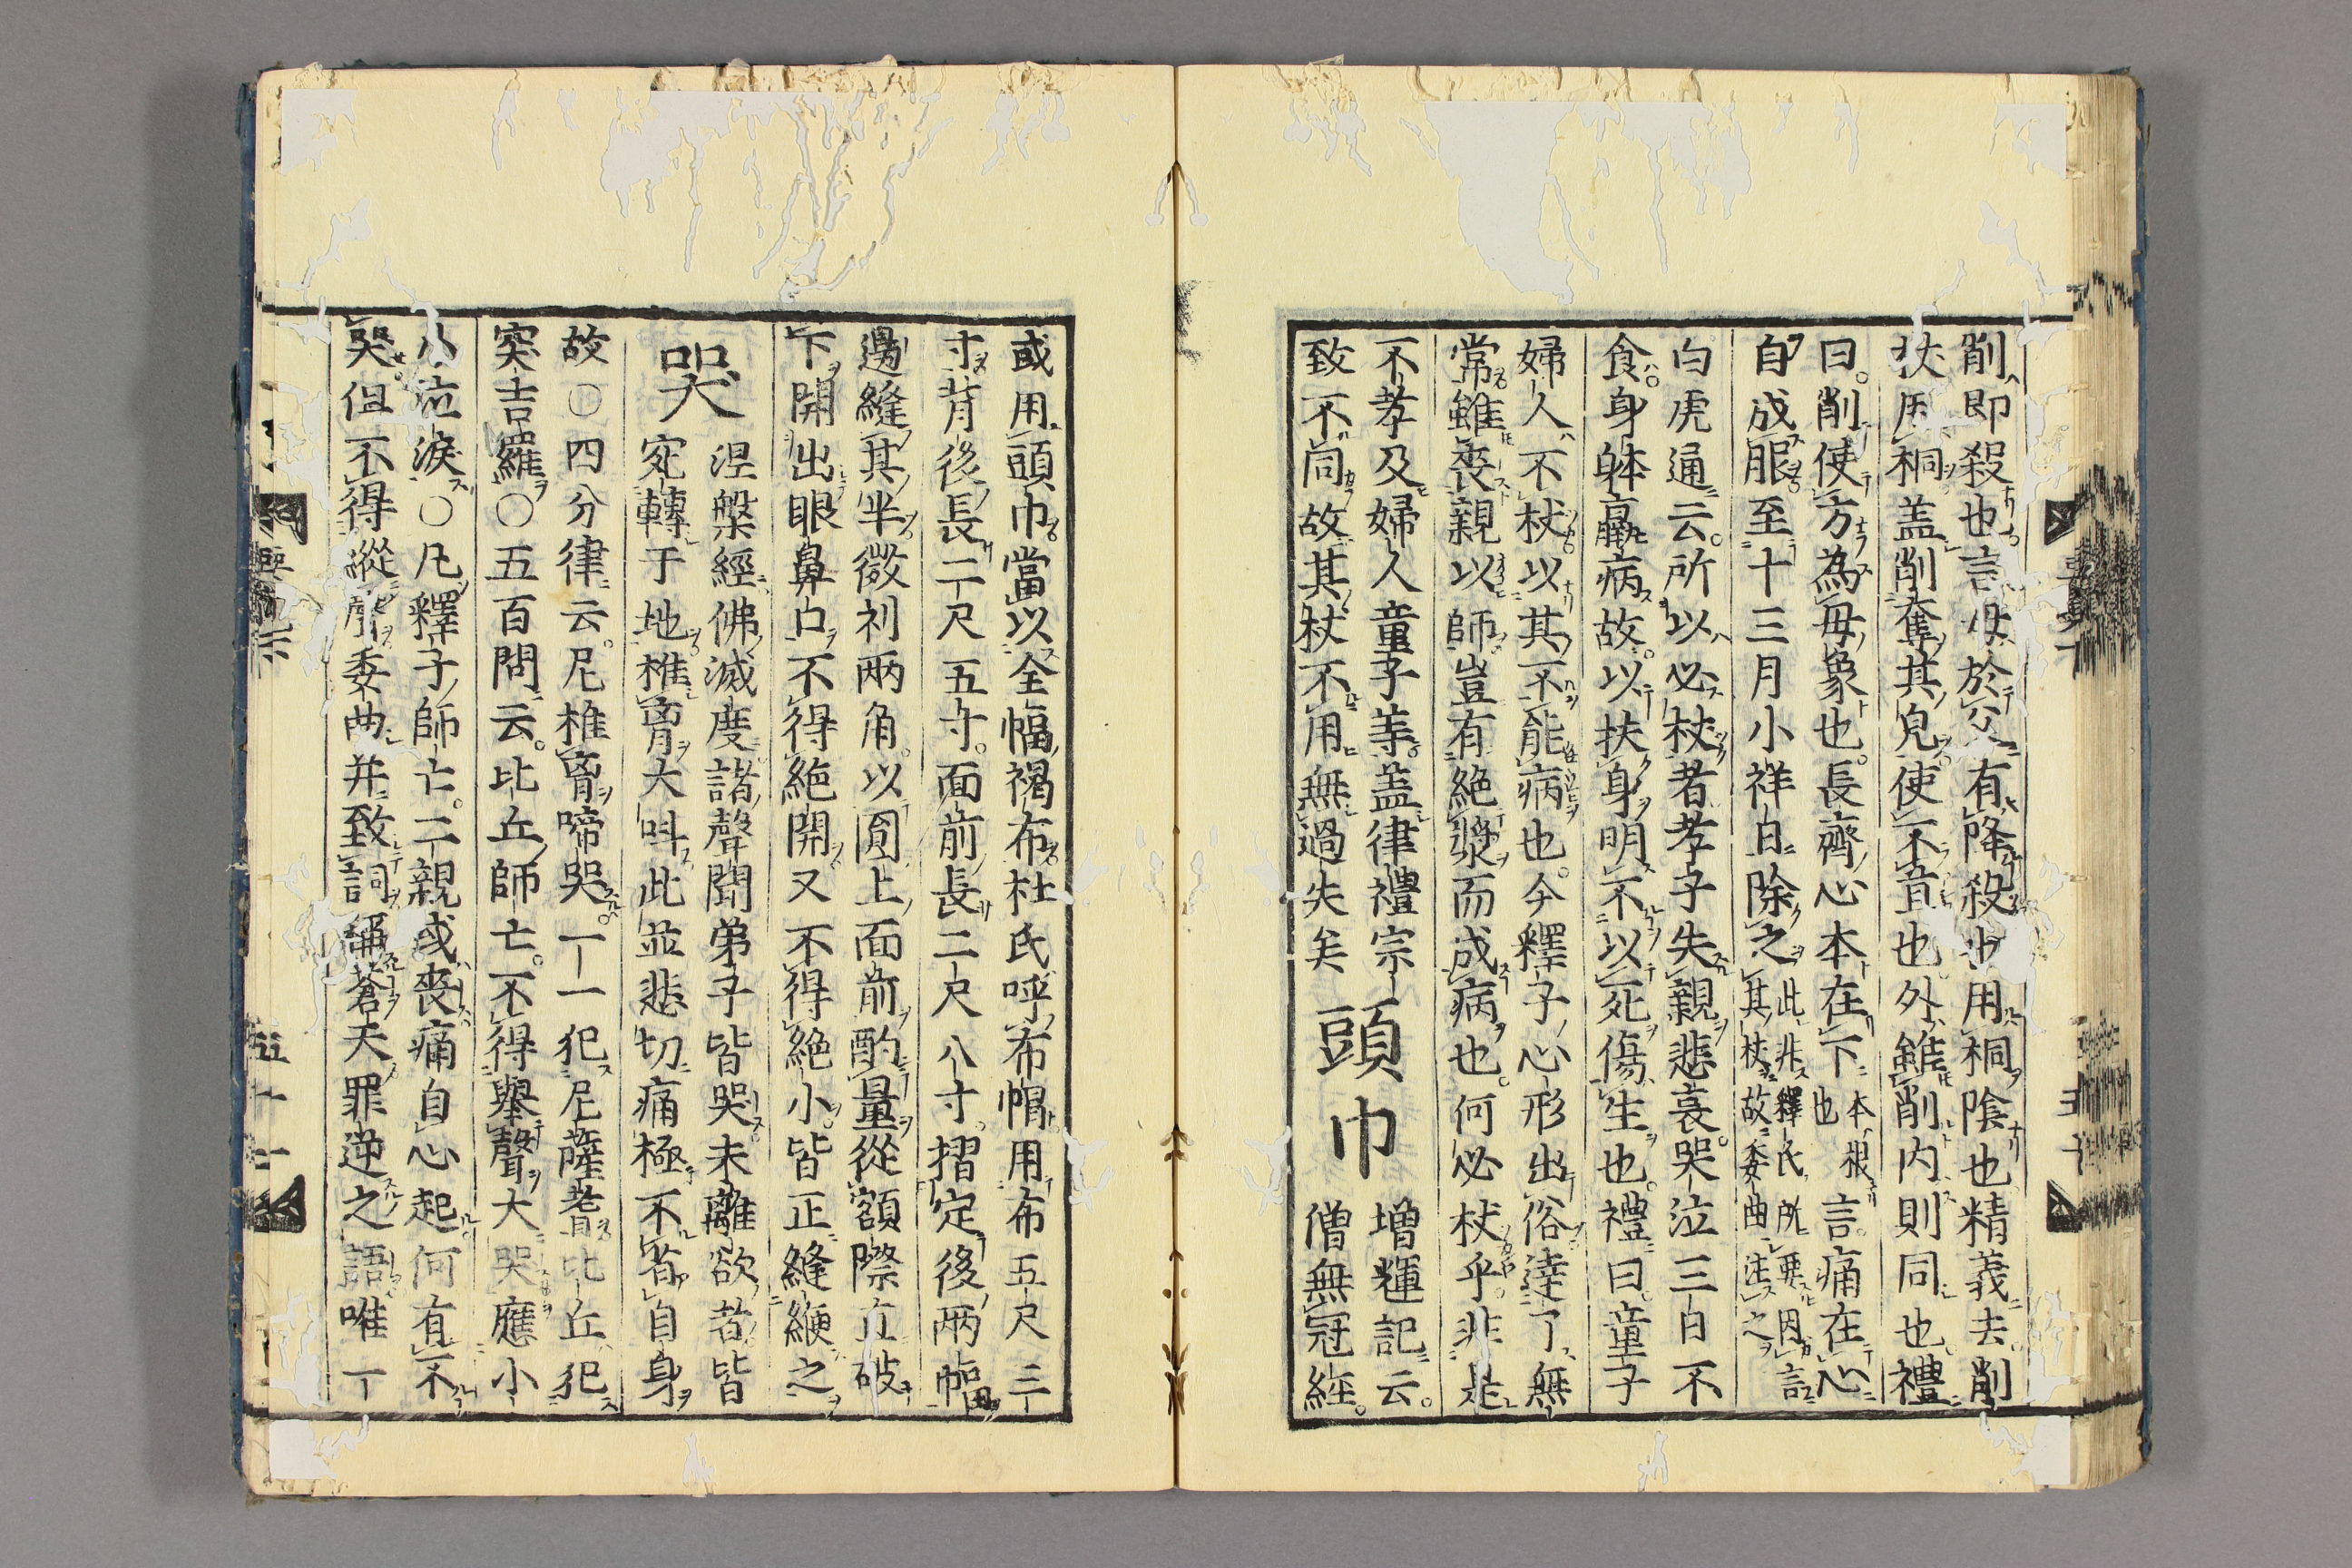 削即殺也言母於父有降殺也用桐陰也精義去削
杖用桐盖削奪其皃使不宣也外雖削内則同也禮
曰削使方為母象也長齊心本在下 本根也 言痛在心
自成服至十三月小祥日除之 此非釋氏所要因言其杖故委曲注之
白虎通云所以必杖者孝子失親悲哀哭泣三日不
食身躰羸病故以扶身明不以死傷生也禮曰童子
婦人不杖以其不能病也今釋子心形出俗達了無
常雖喪親以師豈有絶漿而成病也何必杖乎非是
不孝及婦人童子等盖律禮宗
致不同故其杖不用無過失矣
頭巾
增輝記云
僧無冠絰
或用頭巾當以全幅褐布杜氏呼布帽用布五尺三
寸背後長二尺五寸面前長二尺八寸摺定後兩幅
邊縫其半微利兩角以圓上面前酌量從額際直破
下開出眼鼻口不得絶開又不得絶小皆正縫緶之
哭
涅槃經佛滅度諸聲聞弟子皆哭未離欲者皆
宛轉于地椎胷大呌此並悲切痛極不省自身
故〇四分律云尼椎胷啼哭一一犯尼薩耆比丘犯
突吉羅〇五百問云比丘師亡不得舉聲大哭應小
小泣淚〇凡釋子師亡二親或喪痛自心起何有不
哭但不得縱聲委曲并致詞稱蒼天罪逆之語唯一